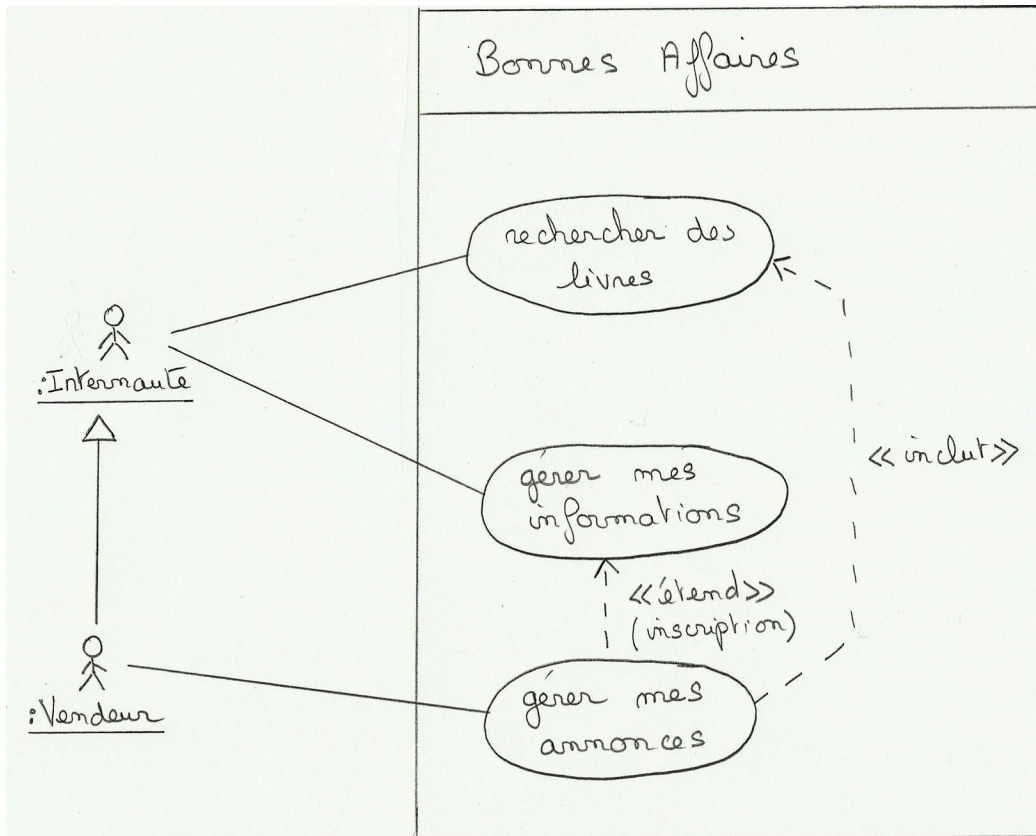 Bonnes Affaires
rechercher des
livres
:Internaute
gérer mes
informations
<<inclut>>
<<étend>>
(inscription)
:Vendeur
gérer mes
annonces